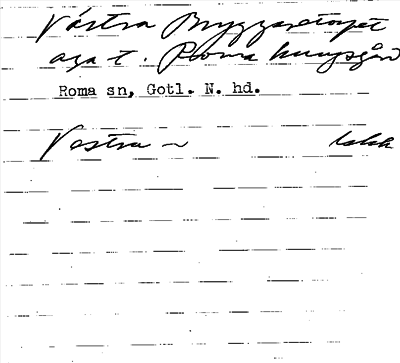 Västra Bryggaretorpet
äga t. Roma kungsgård
Roma sn, Gotl. N. hd.
Västra ~